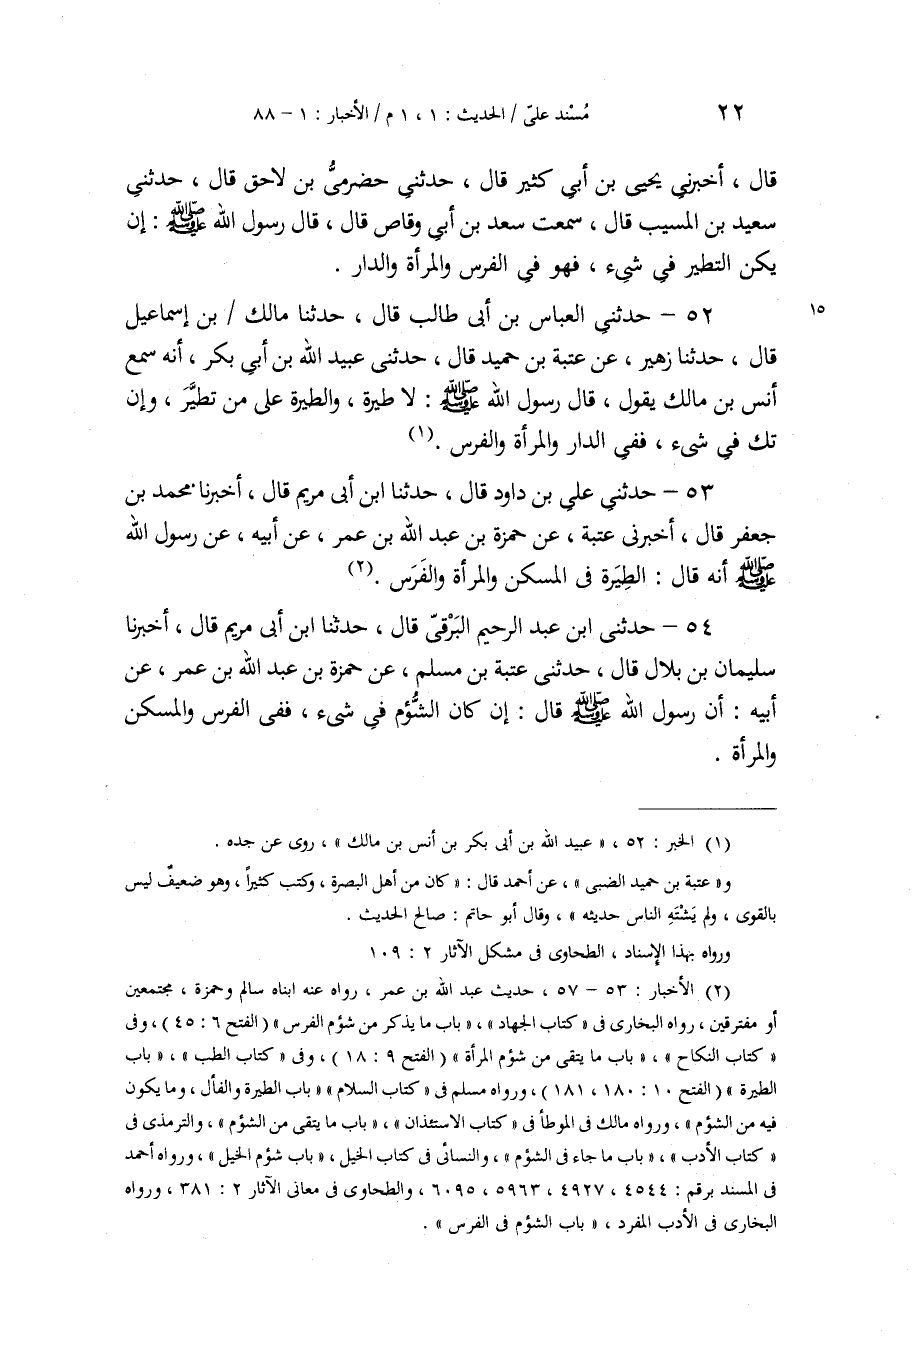 ٢٢ مُسْند علىّ / الحديث : ١ ، ١ م / الأخبار : ١ – ٨٨
قال ، أخبرني يحيى بن أبي كثير قال ، حدثني حضرميُّ بن لاحق قال ، حدثني
سعيد بن المسيب قال ، سمعت سعد بن أبي وقاص قال ، قال رسول الله ﷺ : إن
يكن التطير في شىء ، فهو في الفرس والمرأة والدار .
٥٢ – حدثني العباس بن أبى طالب قال ، حدثنا مالك / بن إسماعيل ١٥
قال ، حدثنا زهير ، عن عتبة بن حميد قال ، حدثنى عبيد الله بن أبي بكر ، أنه سمع
أنس بن مالك يقول ، قال رسول الله ﷺ : لا طيرة ، والطيرة على من تطيَّر ، وإن
تك في شىء ، ففي الدار والمرأة والفرس .(١)
٥٣ – حدثني علي بن داود قال ، حدثنا ابن أبى مريم قال ، أخبرنا محمد بن
جعفر قال ، أخبرنى عتبة ، عن حمزة بن عبد الله بن عمر ، عن أبيه ، عن رسول الله
ﷺ أنه قال : الطِيَرة فى المسكن والمرأة والفَرَس .(٢)
٥٤ – حدثنى ابن عبد الرحيم البَرْقىّ قال ، حدثنا ابن أبى مريم قال ، أخبرنا
سليمان بن بلال قال ، حدثنى عتبة بن مسلم ، عن حمزة بن عبد الله بن عمر ، عن
أبيه : أن رسول الله ﷺ قال : إن كان الشُّؤم في شىء ، ففى الفرس والمسكن
والمرأة .
(١) الخبر : ٥٢ ، « عبيد الله بن أبى بكر بن أنس بن مالك » ، روى عن جده .
و« عتبة بن حميد الضبى » ، عن أحمد قال : « كان من أهل البصرة ، وكتب كثيراً ، وهو ضعيفٌ ليس
بالقوى ، ولم يَشْتَهِ الناس حديثه » ، وقال أبو حاتم : صالح الحديث .
ورواه بهذا الإسناد ، الطحاوى فى مشكل الآثار ٢ : ١٠٩
(٢) الأخبار : ٥٣ – ٥٧ ، حديث عبد الله بن عمر ، رواه عنه ابناه سالم وحمزة ، مجتمعين
أو مفترقين ، رواه البخارى فى « كتاب الجهاد » ، « باب ما يذكر من شؤم الفرس » ( الفتح ٦ : ٤٥ ) ، وفى
« كتاب النكاح » ، « باب ما يتقى من شؤم المرأة » ( الفتح ٩ : ١٨ ) ، وفى « كتاب الطب » ، « باب
الطيرة » ( الفتح ١٠ : ١٨٠ ، ١٨١ ) ، ورواه مسلم فى « كتاب السلام » « باب الطيرة والفأل ، وما يكون
فيه من الشؤم » ، ورواه مالك فى الموطأ فى « كتاب الاستئذان » ، « باب ما يتقى من الشؤم » ، والترمذى فى
« كتاب الأدب » ، « باب ما جاء فى الشؤم » ، والنسائى فى كتاب الخيل ، « باب شؤم الخيل » ، ورواه أحمد
فى المسند برقم : ٤٥٤٤ ، ٤٩٢٧ ، ٥٩٦٣ ، ٦٠٩٥ ، والطحاوى فى معانى الآثار ٢ : ٣٨١ ، ورواه
البخارى فى الأدب المفرد ، « باب الشؤم فى الفرس » .